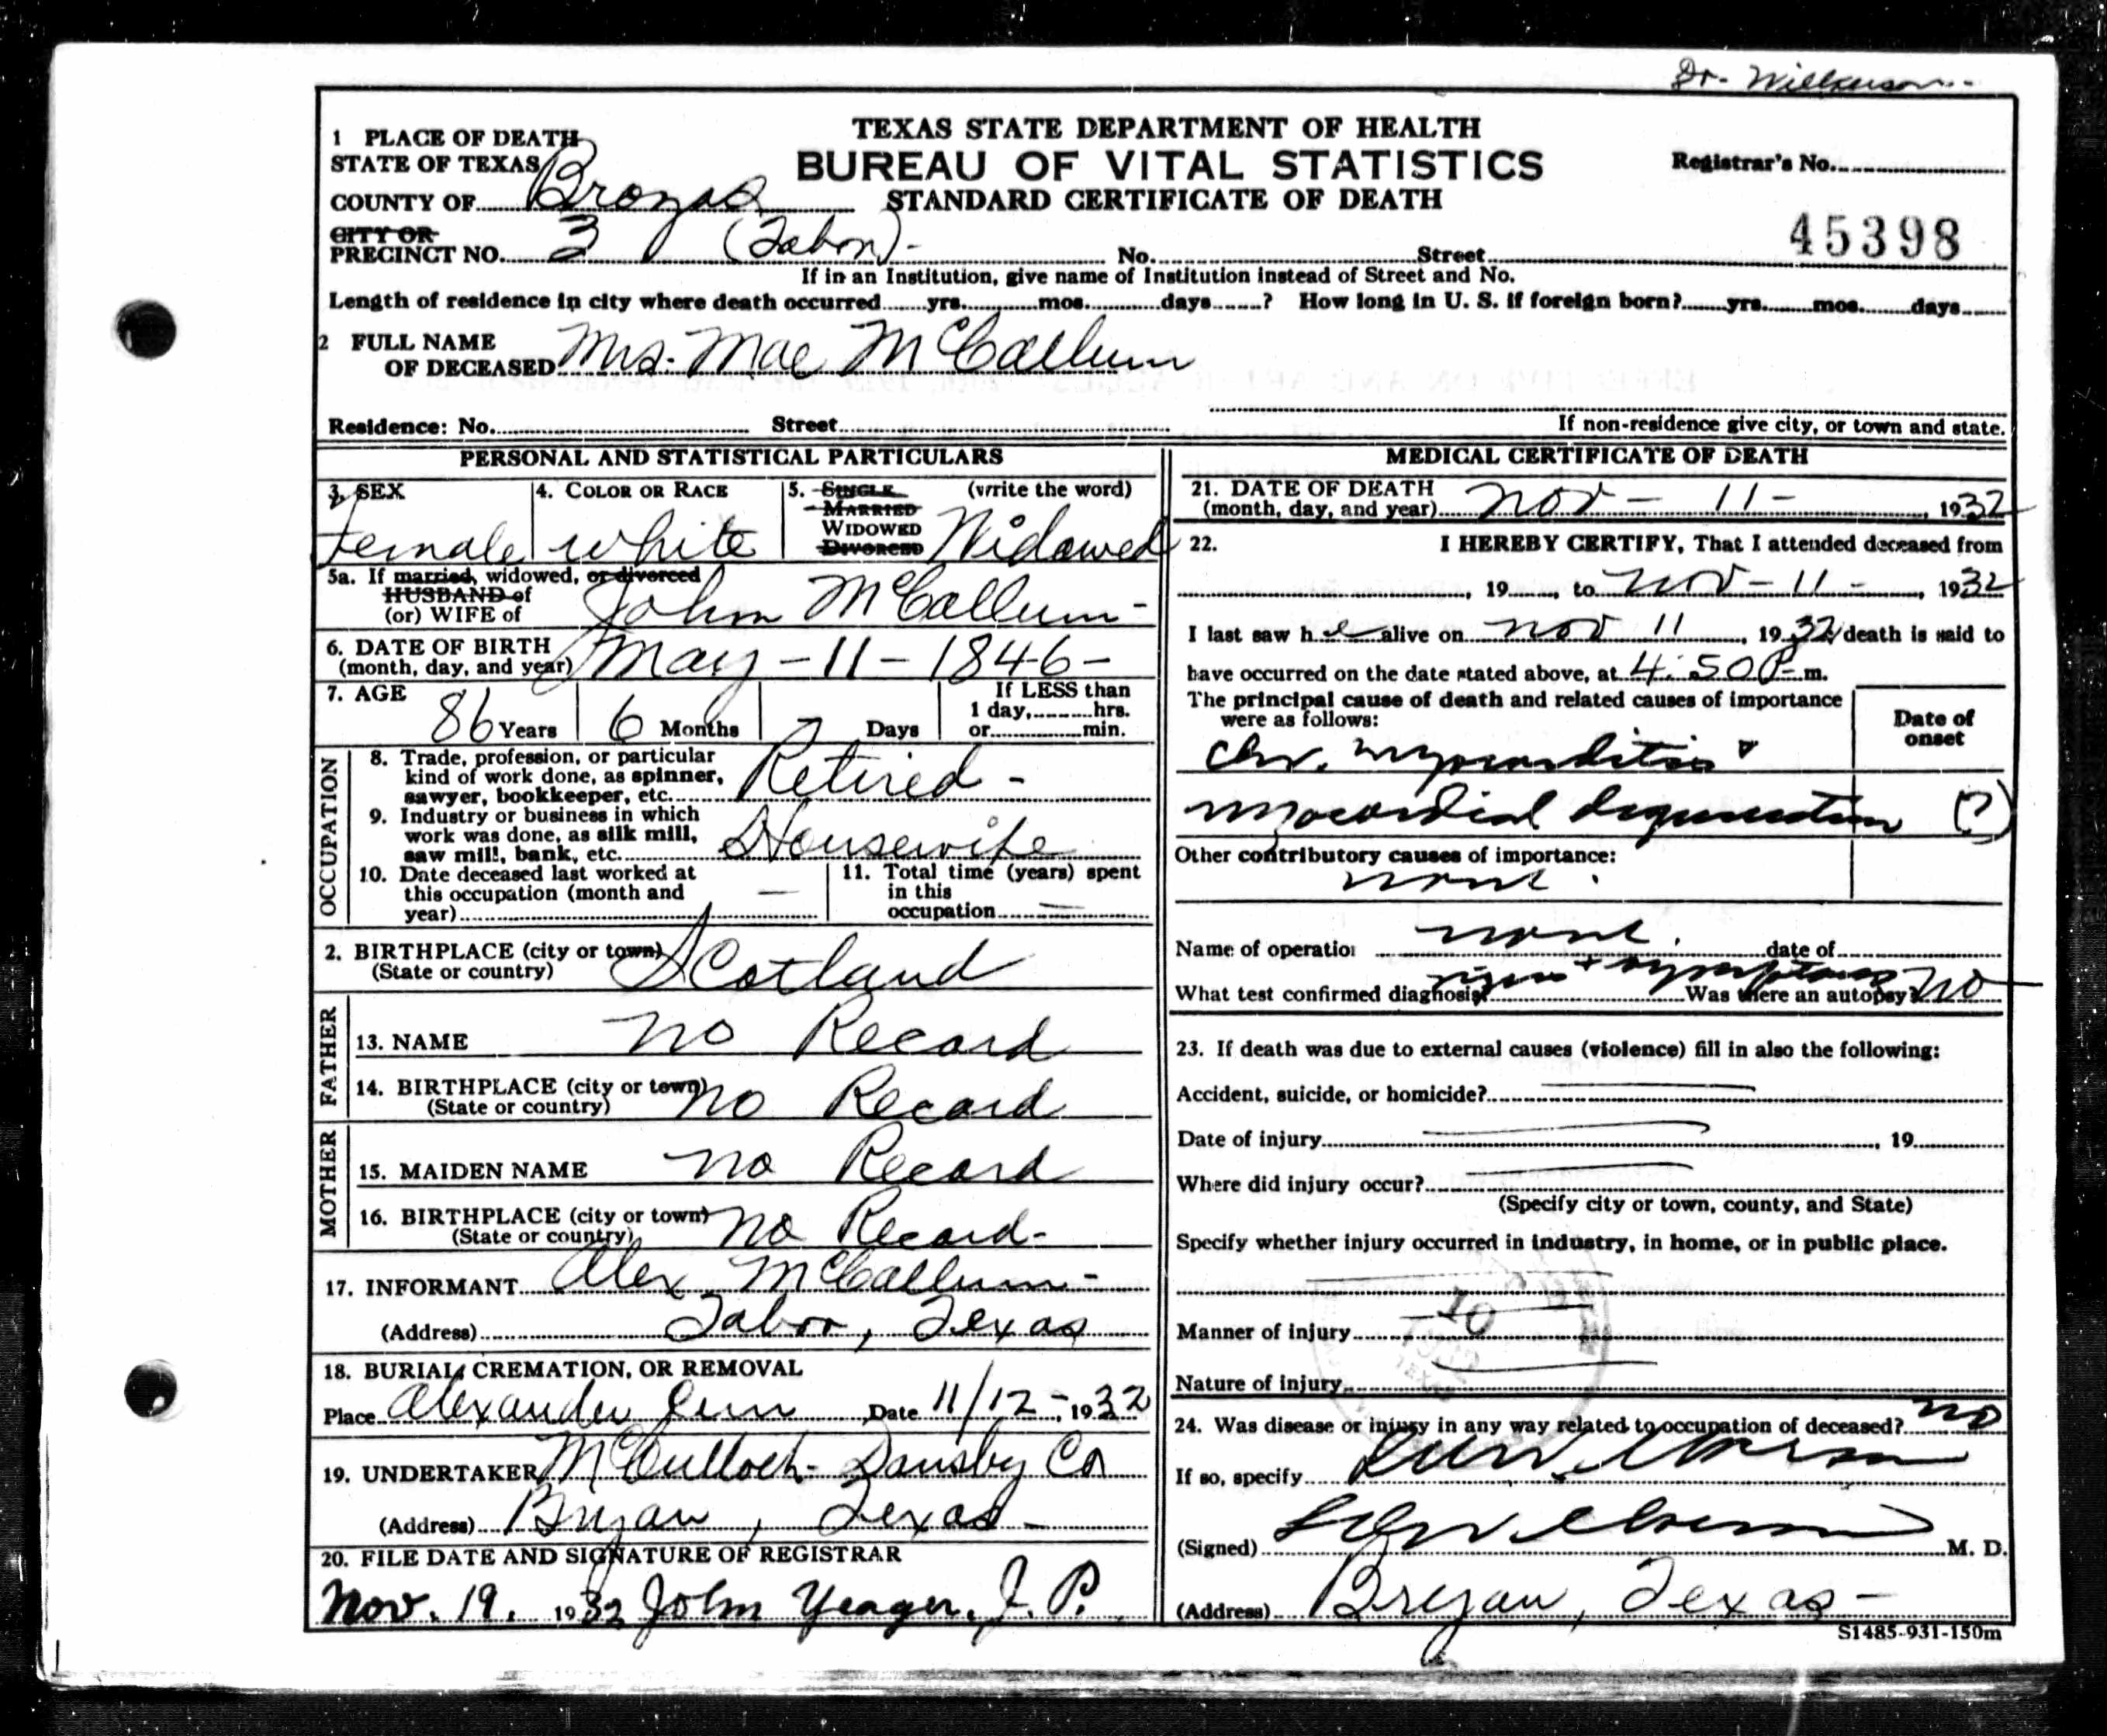 Dr. Wilkerson
1 PLACE OF DEATH
STATE OF TEXAS
COUNTY OF Brazos
CITY OR
PRECINCT NO. 3 (Tabor)-
TEXAS STATE DEPARTMENT OF HEALTH
BUREAU OF VITAL STATISTICS
STANDARD CERTIFICATE OF DEATH
Registrar's No.
45398
No. Street
If in an Institution, give name of Institution instead of Street and No.
Length of residence in city where death occurred yrs. mos. days ? How long in U. S. if foreign born? yrs. mos. days
2 FULL NAME
OF DECEASED Mrs. Mae McCallum
Residence: No. Street
If non-residence give city, or town and state.
PERSONAL AND STATISTICAL PARTICULARS
3. SEX
Female
4. COLOR OR RACE
white
5. SINGLE (write the word)
MARRIED
WIDOWED Widowed
DIVORCED
5a. If married, widowed, or divorced
HUSBAND of
(or) WIFE of John McCallum-
6. DATE OF BIRTH
(month, day, and year) May-11-1846-
7. AGE
86 Years 6 Months Days
If LESS than
1 day, hrs.
or min.
OCCUPATION
8. Trade, profession, or particular
kind of work done, as spinner,
sawyer, bookkeeper, etc. Retired-
9. Industry or business in which
work was done, as silk mill,
saw mill, bank, etc. Housewife
10. Date deceased last worked at
this occupation (month and
year) —
11. Total time (years) spent
in this
occupation —
2. BIRTHPLACE (city or town)
(State or country) Scotland
FATHER
13. NAME No Record
14. BIRTHPLACE (city or town)
(State or country) No Record
MOTHER
15. MAIDEN NAME No Record
16. BIRTHPLACE (city or town)
(State or country) No Record-
17. INFORMANT Alex McCallum-
(Address) Tabor, Texas
18. BURIAL, CREMATION, OR REMOVAL
Place Alexander Date 11/12-, 1932
19. UNDERTAKER McCulloch-Dansby Co
(Address) Bryan, Texas-
20. FILE DATE AND SIGNATURE OF REGISTRAR
Nov. 19, 1932 John Yeager, J. P.
MEDICAL CERTIFICATE OF DEATH
21. DATE OF DEATH
(month, day, and year) Nov-11-, 1932
22. I HEREBY CERTIFY, That I attended deceased from
, 19 , to Nov-11-, 1932
I last saw h e alive on Nov 11, 1932, death is said to
have occurred on the date stated above, at 4:50 P-m.
The principal cause of death and related causes of importance
were as follows:
Date of
onset
Chr. myocarditis &
myocardial degeneration (?)
Other contributory causes of importance:
none.
Name of operation none. date of
What test confirmed diagnosis? signs + symptoms Was there an autopsy? No
23. If death was due to external causes (violence) fill in also the following:
Accident, suicide, or homicide?
Date of injury , 19
Where did injury occur?
(Specify city or town, county, and State)
Specify whether injury occurred in industry, in home, or in public place.
Manner of injury
Nature of injury
24. Was disease or injury in any way related to occupation of deceased? No
If so, specify
(Signed) M. D.
(Address) Bryan, Texas-
S1485-931-150m